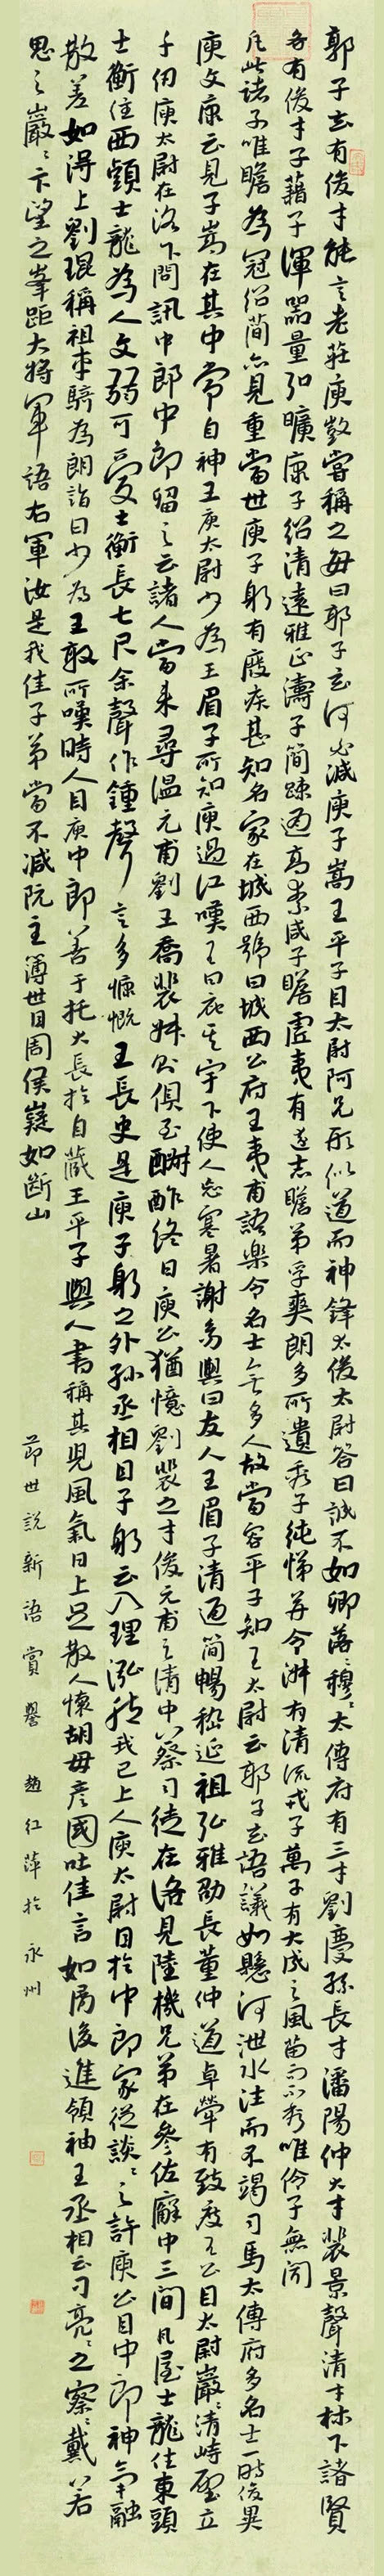 郭子玄有俊才能言老莊庾敳嘗稱之每曰郭子玄何必減庾子嵩王平子目太尉阿兄形似道而神鋒太俊太尉答曰誠不如卿落落穆穆太傅府有三才劉慶孫長才潘陽仲大才裴景聲清才林下諸賢
各有俊才子藉子渾器量弘曠康子紹清遠雅正濤子簡疎通高素咸子瞻虛夷有遠志瞻弟孚爽朗多所遺秀子純悌並令淑有清流戎子萬子有大成之風苗而不秀唯伶子無聞
凡此諸子唯瞻為冠紹簡亦見重當世庾子躬有廢疾甚知名家在城西號曰城西公府王夷甫語樂令名士無多人故當容平子知王太尉云郭子玄語議如懸河泄水注而不竭司馬太傅府多名士一時俊異
庾文康云見子嵩在其中常自神王庾太尉少為王眉子所知庾過江嘆王曰庇其宇下使人忘寒暑謝幼輿曰友人王眉子清通簡暢嵇延祖弘雅劭長董仲道卓犖有致度王公目太尉巖巖清峙壁立
千仞庾太尉在洛下問訊中郎中郎留之云諸人當來尋溫元甫劉王喬裴叔則俱至酬酢終日庾公猶憶劉裴之才俊元甫之清中蔡司徒在洛見陸機兄弟在參佐廨中三間瓦屋士龍住東頭
士衡住西頭士龍為人文弱可愛士衡長七尺余聲作鍾聲言多慷慨王長史是庾子躬之外孫丞相目子躬云入理泓然我已上人庾太尉目於中郎家從談談之許庾公目中郎神氣融
散差如得上劉琨稱祖車騎為朗詣曰少為王敦所嘆時人目庾中郎善于托大長於自藏王平子與人書稱其兒風氣日上足散人懷胡毋彥國吐佳言如屑後進領袖王丞相云刁亮亮之察察戴若
思之巖巖卞望之峯距大將軍語右軍汝是我佳子弟當不減阮主簿世目周侯嶷如斷山
節世説新語賞譽 趙紅萍於永州